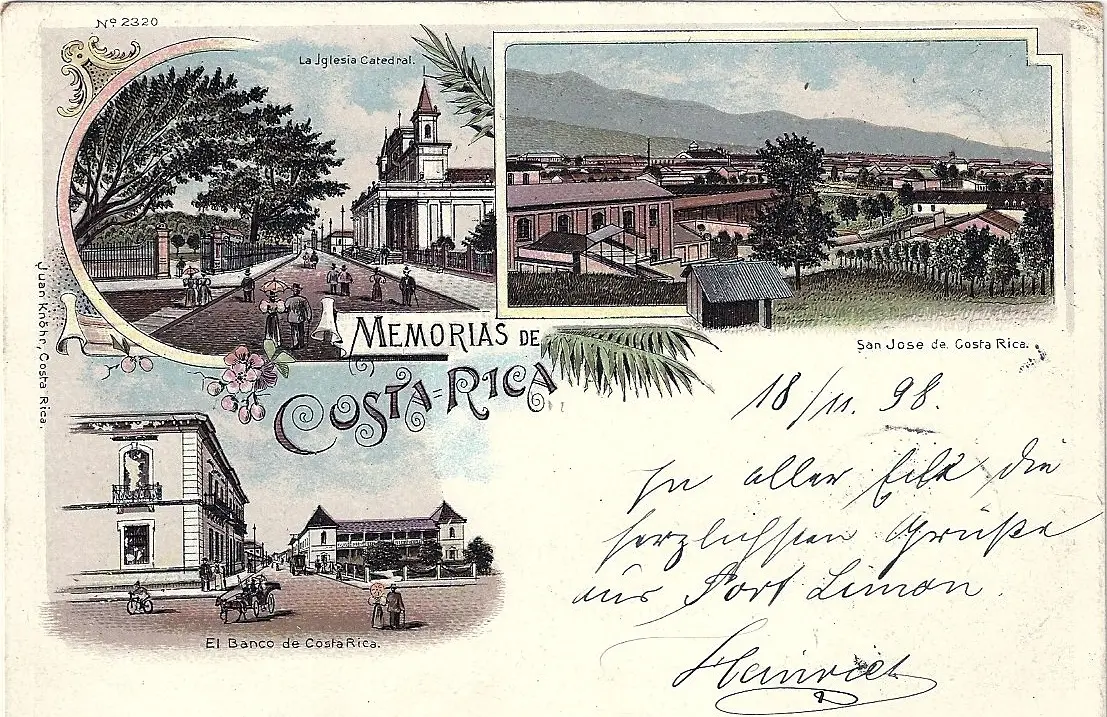 Nº 2320
La Jglesia Catedral.
MEMORIAS DE
COSTA-RICA
San Jose de Costa Rica.
Juan Knöhr, Costa Rica.
El Banco de Costa Rica.
18/11. 98.
In aller Eile die
herzlichsten Grüße
aus Port Limon.
Heinrich